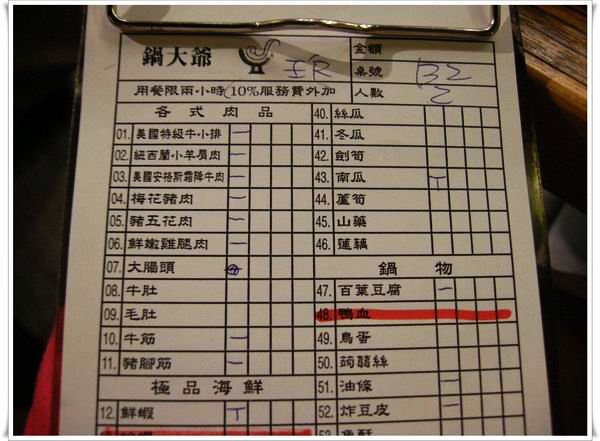 鍋大爺
金額
桌號 B2
用餐限兩小時 10%服務費外加
人數 2
各式肉品
01. 美國特級牛小排 一
02. 紐西蘭小羊肩肉 一
03. 美國安格斯霜降牛肉 一
04. 梅花豬肉 一
05. 豬五花肉 一
06. 鮮嫩雞腿肉 一
07. 大腸頭
08. 牛肚
09. 毛肚
10. 牛筋 一
11. 豬腳筋 一
極品海鮮
12. 鮮蝦 T
40. 絲瓜
41. 冬瓜
42. 劍筍
43. 南瓜 T
44. 蘆筍
45. 山藥
46. 蓮藕
鍋物
47. 百葉豆腐 一
48. 鴨血
49. 鳥蛋
50. 蒟蒻絲
51. 油條 一
52. 炸豆皮 一